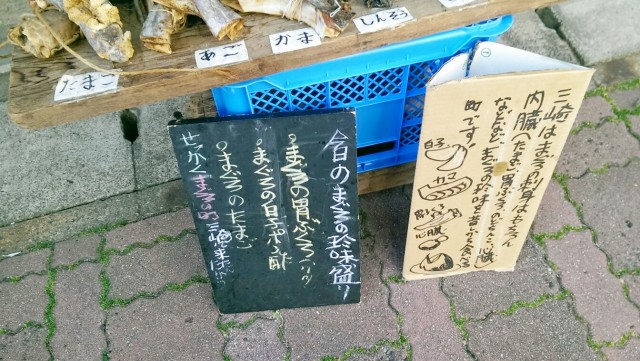 たまご
あご
かま
しんぞう
今日のまぐろの珍味盛り
まぐろの胃ぶくろ
まぐろの白子ポン酢
まぐろのたまご
せっかくまぐろの町三崎に来た
三崎はまぐろの刺身はもちろん
内臓、たまご、胃ぶくろ、心臓
などなど、まぐろの珍味を昔から食べる
町です!
白子
カマ
心臓